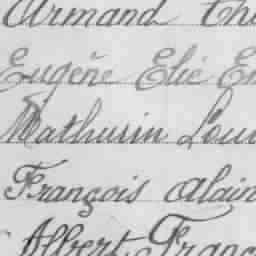 Armand Th
Eugène Elie Em
Mathurin Lou
François Alain
Albert Franç